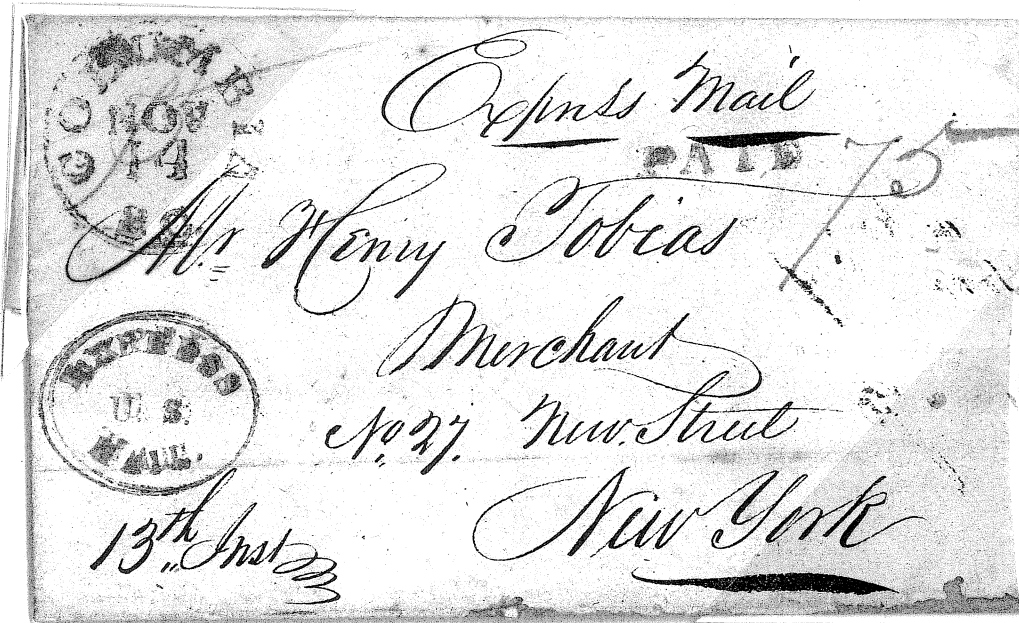 COLUMBIA
NOV
14
Express Mail
PAID 75
Mr. Henry Tobias
Merchant
No. 27. New. Street
New York
EXPRESS
U. S.
MAIL.
13th Inst